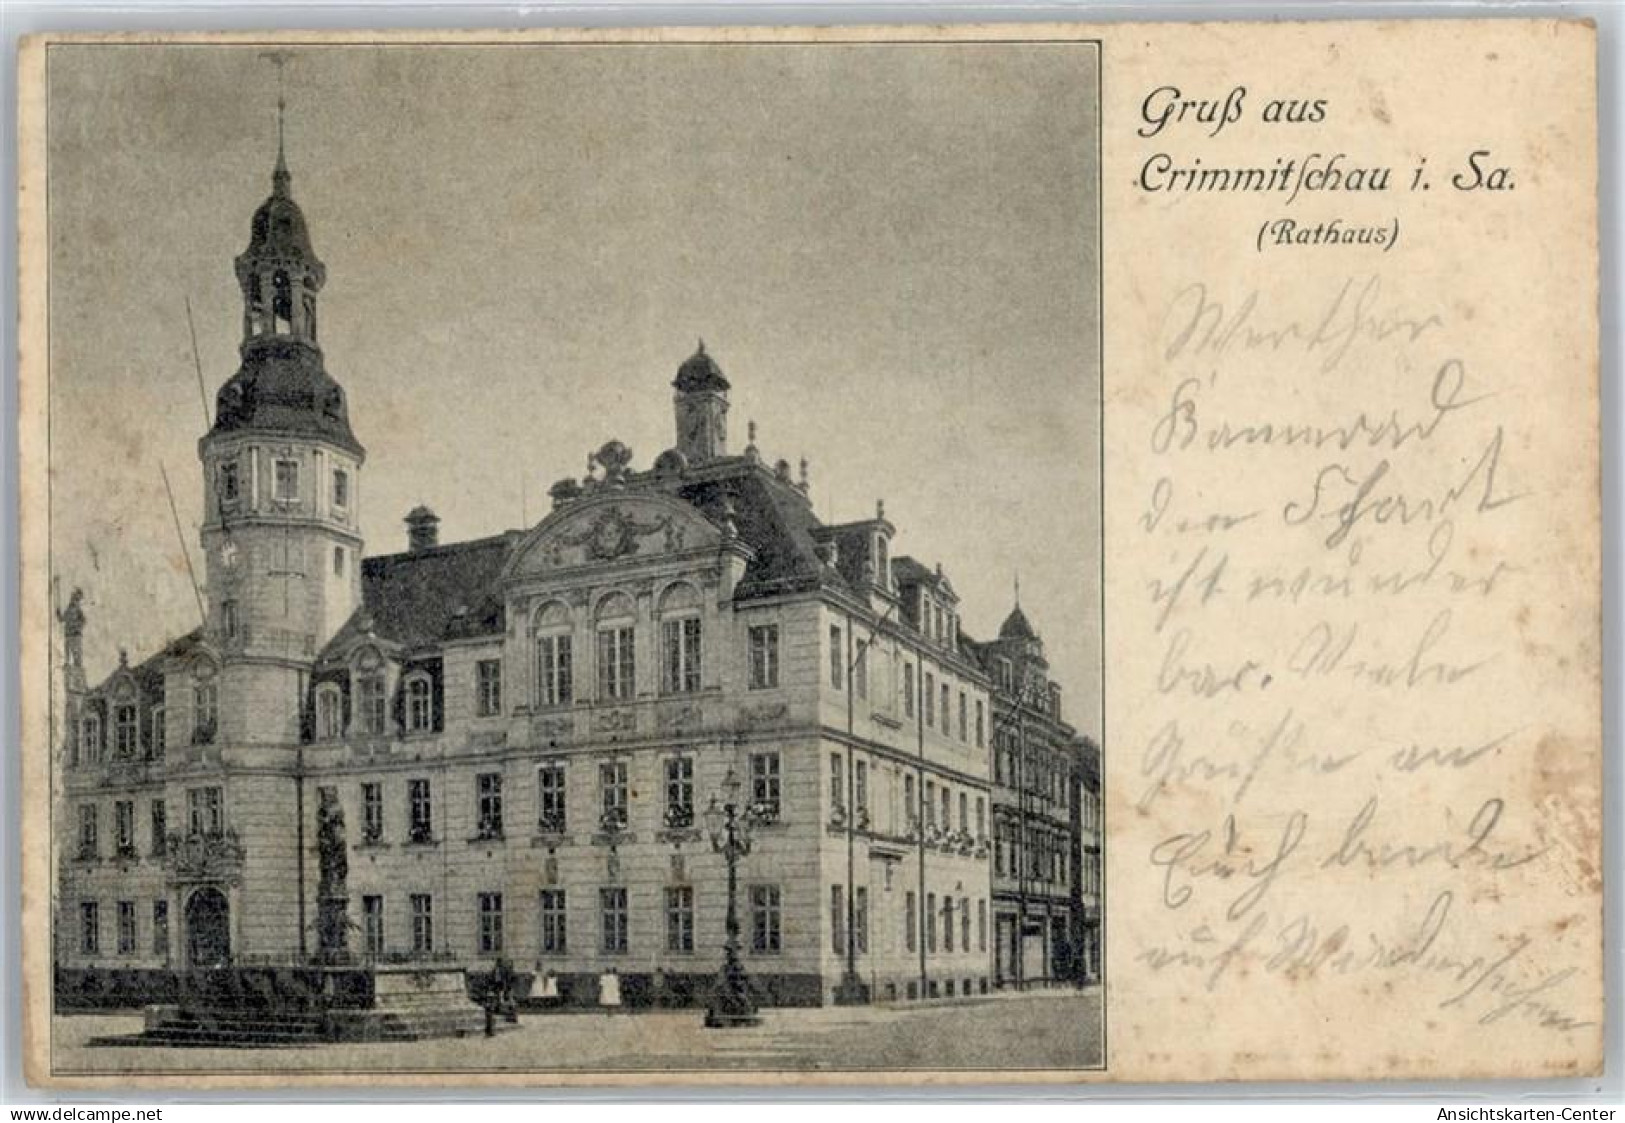 Gruß aus
Crimmitſchau i. Sa.
(Rathaus)
Werther
Kamerad
ist wunder
bar. Viele
Grüße an
Euch beide
auf Wiedersehen
www.delcampe.net
Ansichtskarten-Center